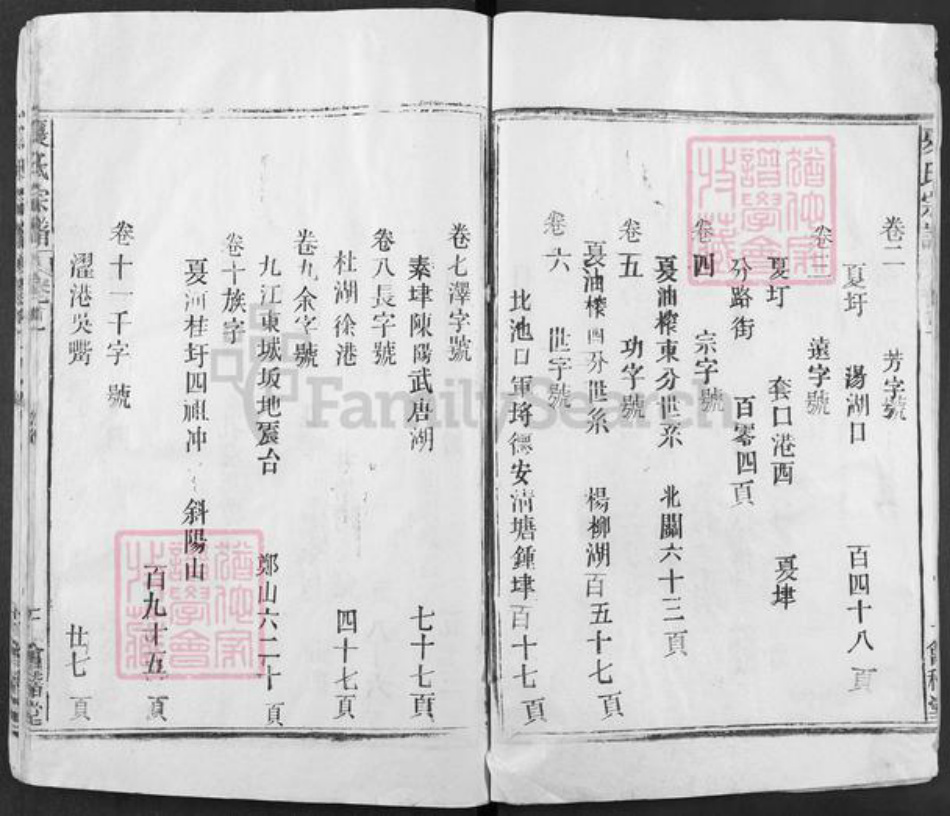 卷二 芳字號
夏圩 湯湖口 百四十八頁
卷三 遠字號
夏圩 套口港西 夏埠
分路街 百零四頁
卷四 宗字號
夏油榨東分世系 北關六十三頁
卷五 功字號
夏油榨四分世系 楊柳湖百五十七頁
卷六 世字號
北池口軍垮德安清塘鍾埠百十七頁
卷七澤字號
素埠陳陽武唐湖 七十七頁
卷八長字號
杜湖徐港 四十七頁
卷九余字號
九江東城坂地 台 鄭山六二十頁
卷十族字
夏河桂圩四祖冲 斜陽山
百九十五頁
卷十一千字號
濯港吳 廿七頁
夏氏宗譜
會譜堂
FamilySearch
猶他家譜學會收藏
猶他家譜學會收藏